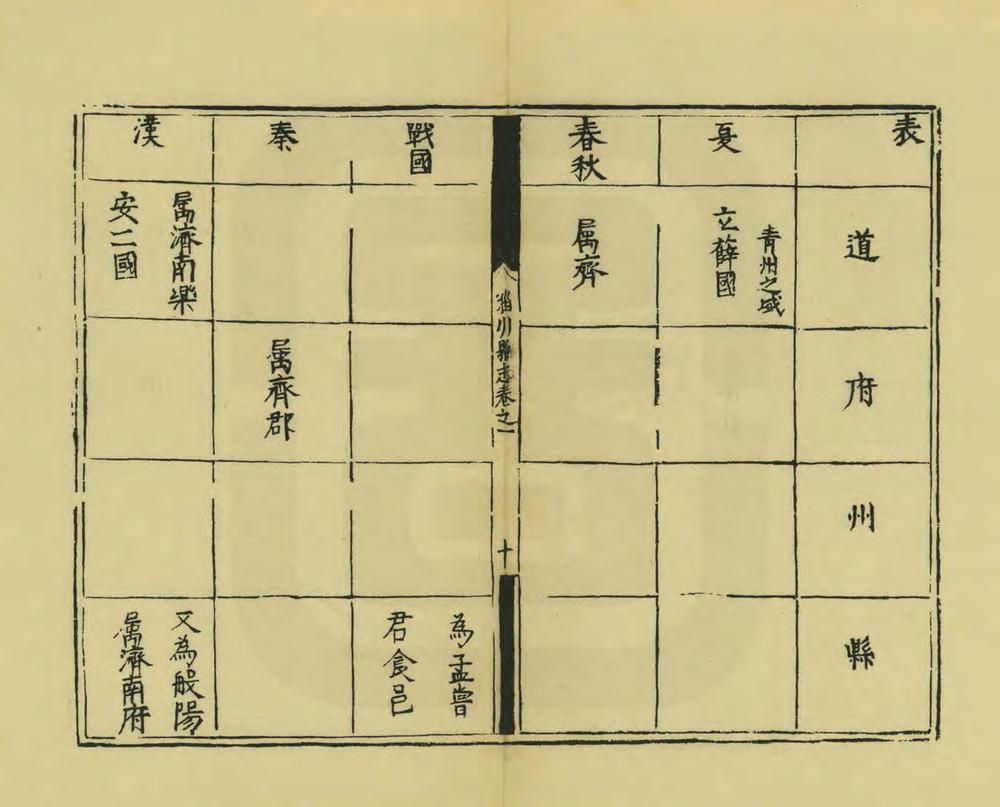 表
道
府
州
縣
夏
青州之域
立薛國
春秋
属齊
淄川縣志卷之一
十
戰國
為孟嘗
君食邑
秦
属齊郡
漢
属濟南樂
安二國
又為般陽
属濟南府